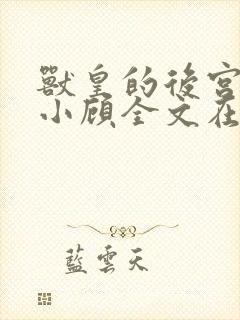 獸皇的後宮
小顾全文在
藍雲天